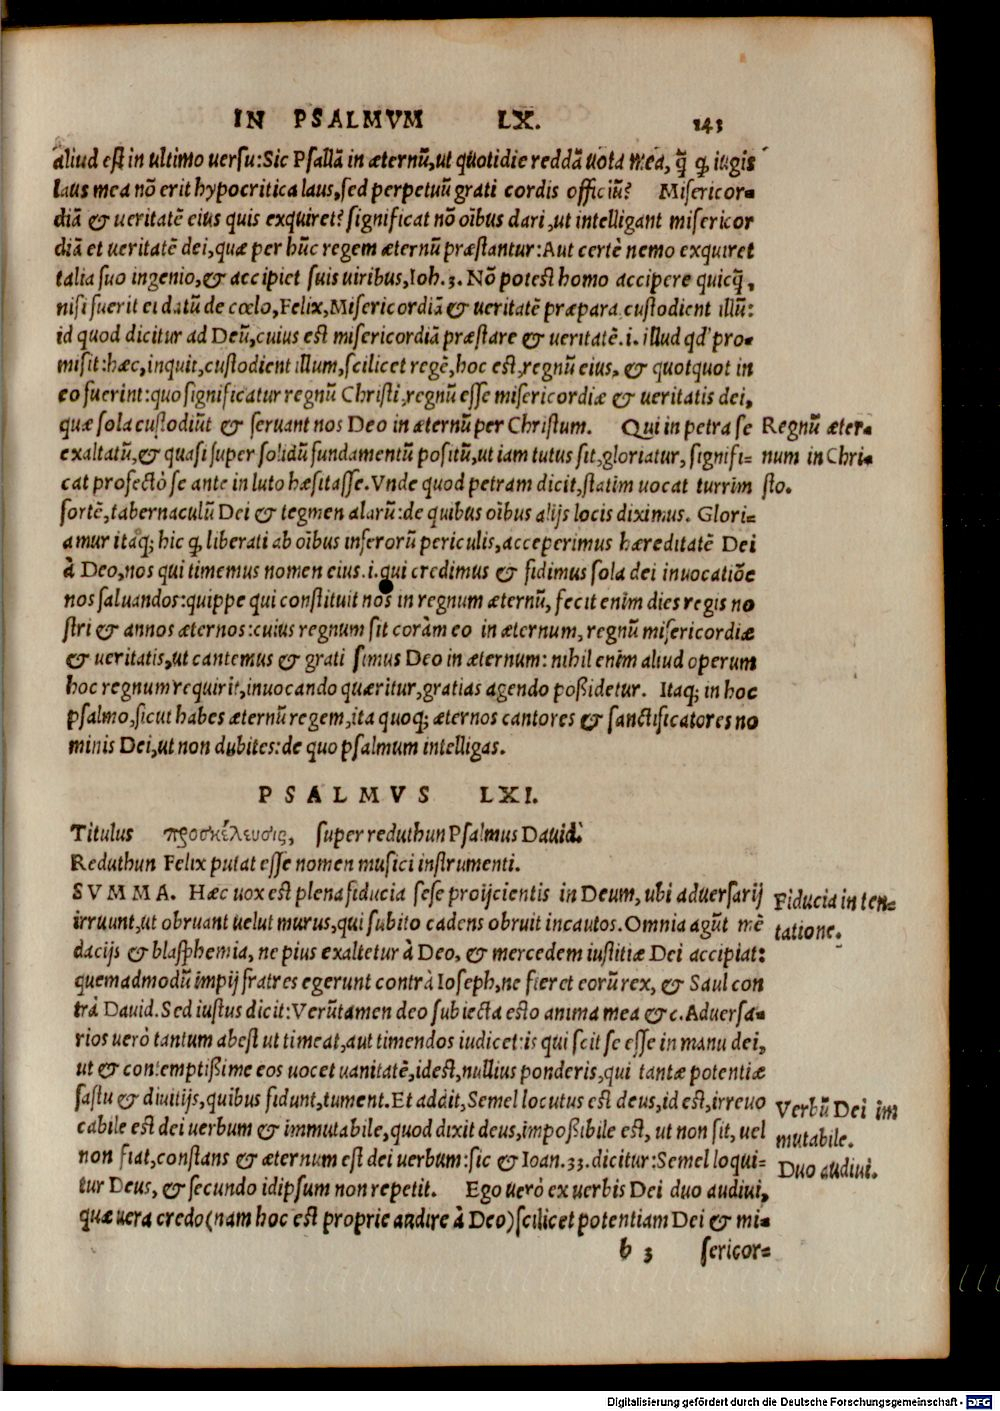 IN PSALMVM LX. 143
aliud est in ultimo uersu: Sic Psallã in æternũ, ut quotidie reddã uota mea, q̃ ꝙ iugis
laus mea nõ erit hypocritica laus, sed perpetuũ grati cordis officiũ? Misericor-
diã & ueritatẽ eius quis exquiret? significat nõ oĩbus dari, ut intelligant misericor
diã et ueritatẽ dei, quæ per hũc regem æternũ præstantur: Aut certè nemo exquiret
talia suo ingenio, & accipiet suis uiribus, Ioh. 3. Nõ potest homo accipere quicq̃,
nisi fuerit ei datũ de cœlo, Felix, Misericordiã & ueritatẽ præpara custodient illũ:
id quod dicitur ad Deũ, cuius est misericordiã præstare & ueritatẽ .i. illud qd' pro-
misit: hæc, inquit, custodient illum, scilicet regẽ, hoc est, regnũ eius, & quotquot in
eo fuerint: quo significatur regnũ Christi, regnũ esse misericordiæ & ueritatis dei,
quæ sola custodiũt & seruant nos Deo in æternũ per Christum. Qui in petra se
Regnũ æter-
exaltatũ, & quasi super solidũ fundamentũ positũ, ut iam tutus sit, gloriatur, signifi-
num in Chri-
cat profectò se ante in luto hæsitasse. Vnde quod petram dicit, statim uocat turrim
sto.
fortẽ, tabernaculũ Dei & tegmen alarũ: de quibus oĩbus alijs locis diximus. Glori-
amur itaq; hic ꝙ liberati ab oĩbus inferorũ periculis, acceperimus hæreditatẽ Dei
à Deo, nos qui timemus nomen eius .i. qui credimus & fidimus sola dei inuocatiõe
nos saluandos: quippe qui constituit nos in regnum æternũ, fecit enim dies regis no
stri & annos æternos: cuius regnum sit coràm eo in æternum, regnũ misericordiæ
& ueritatis, ut cantemus & grati simus Deo in æternum: nihil enim aliud operum
hoc regnum requirit, inuocando quæritur, gratias agendo poßidetur. Itaq; in hoc
psalmo, sicut habes æternũ regem, ita quoq; æternos cantores & sanctificatores no
minis Dei, ut non dubites: de quo psalmum intelligas.
PSALMVS LXI.
Titulus προσκέλευσις, super reduthun Psalmus Dauid:
Reduthun Felix putat esse nomen musici instrumenti.
SVMMA. Hæc uox est plena fiducia sese proijcientis in Deum, ubi aduersarij
Fiducia in ten-
irruunt, ut obruant uelut murus, qui subito cadens obruit incautos. Omnia agũt mẽ
tatione.
dacijs & blasphemia, ne pius exaltetur à Deo, & mercedem iustitiæ Dei accipiat:
quemadmodũ impij fratres egerunt contrà Ioseph, ne fieret eorũ rex, & Saul con
trà Dauid. Sed iustus dicit: Verũtamen deo subiecta esto anima mea &c. Aduersa-
rios uerò tantum abest ut timeat, aut timendos iudicet: is qui scit se esse in manu dei,
ut & contemptißime eos uocet uanitatẽ, id est, nullius ponderis, qui tantæ potentiæ
fastu & diuitijs, quibus fidunt, tument. Et addit, Semel locutus est deus, id est, irreuo
Verbũ Dei im
cabile est dei uerbum & immutabile, quod dixit deus, impoßibile est, ut non sit, uel
mutabile.
non fiat, constans & æternum est dei uerbum: sic & Ioan. 33. dicitur: Semel loqui-
Duo audiui.
tur Deus, & secundo idipsum non repetit. Ego uerò ex uerbis Dei duo audiui,
quæ uera credo (nam hoc est proprie audire à Deo) scilicet potentiam Dei & mi-
b 3 sericor-
Digitalisierung gefördert durch die Deutsche Forschungsgemeinschaft - DFG